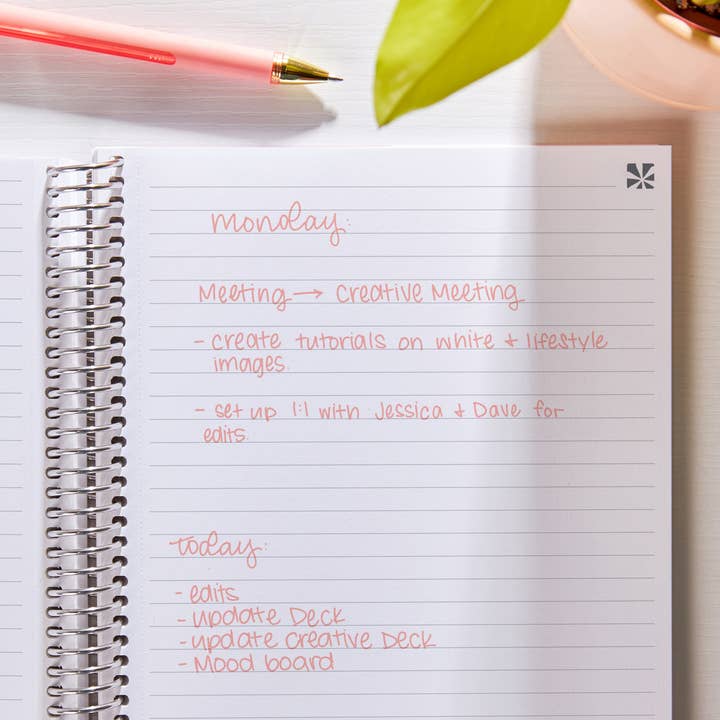 monday:
Meeting → Creative Meeting
- create tutorials on white + lifestyle
images.
- set up 1:1 with Jessica + Dave for
edits.
today:
- edits
- update Deck
- update Creative Deck
- Mood board